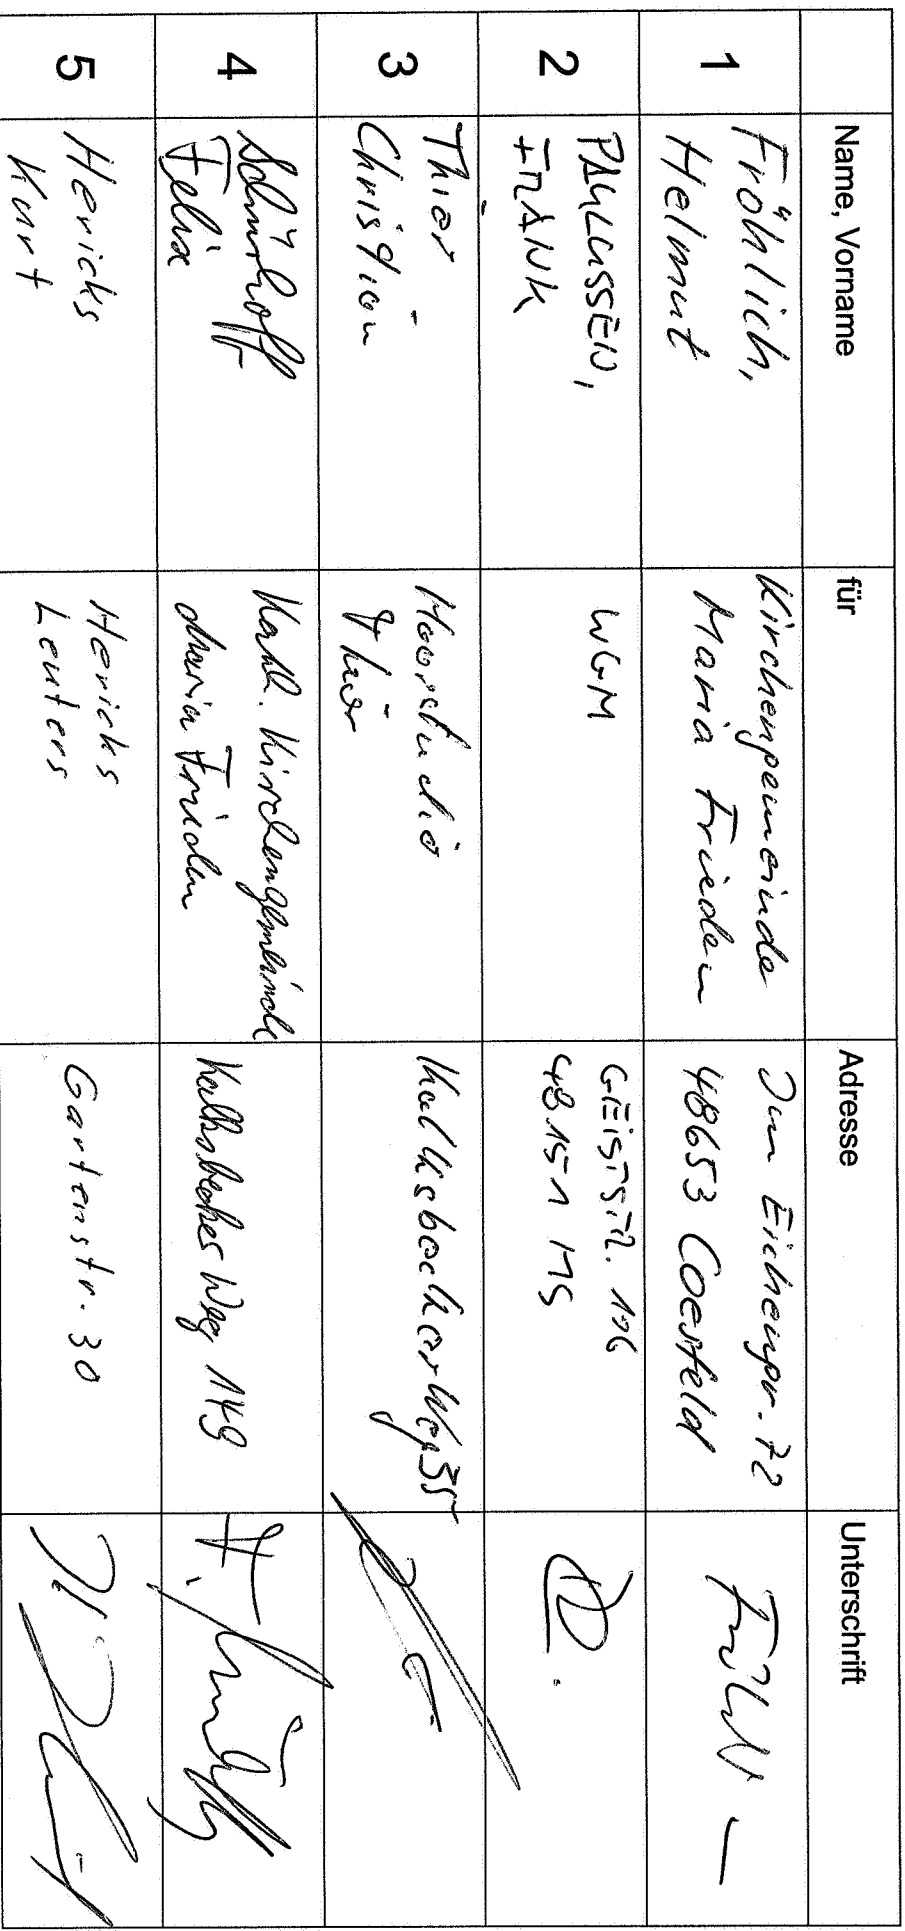 Name, Vorname
für
Adresse
Unterschrift
1
Fröhlich,
Helmut
Kirchengemeinde
Maria Frieden
Im Eichengr. 72
48653 Coesfeld
2
PAULUSSEN,
FRANK
WGM
GEISTSTR. 106
48151 MS
3
Thier
Christian
Haarstudio
Thier
Kalksbecker Weg 35
4
Schürhoff
Felix
Kath. Kirchengemeinde
Maria Frieden
Kalksbecker Weg
5
Hericks
Kurt
Hericks
Leuters
Gartenstr. 30